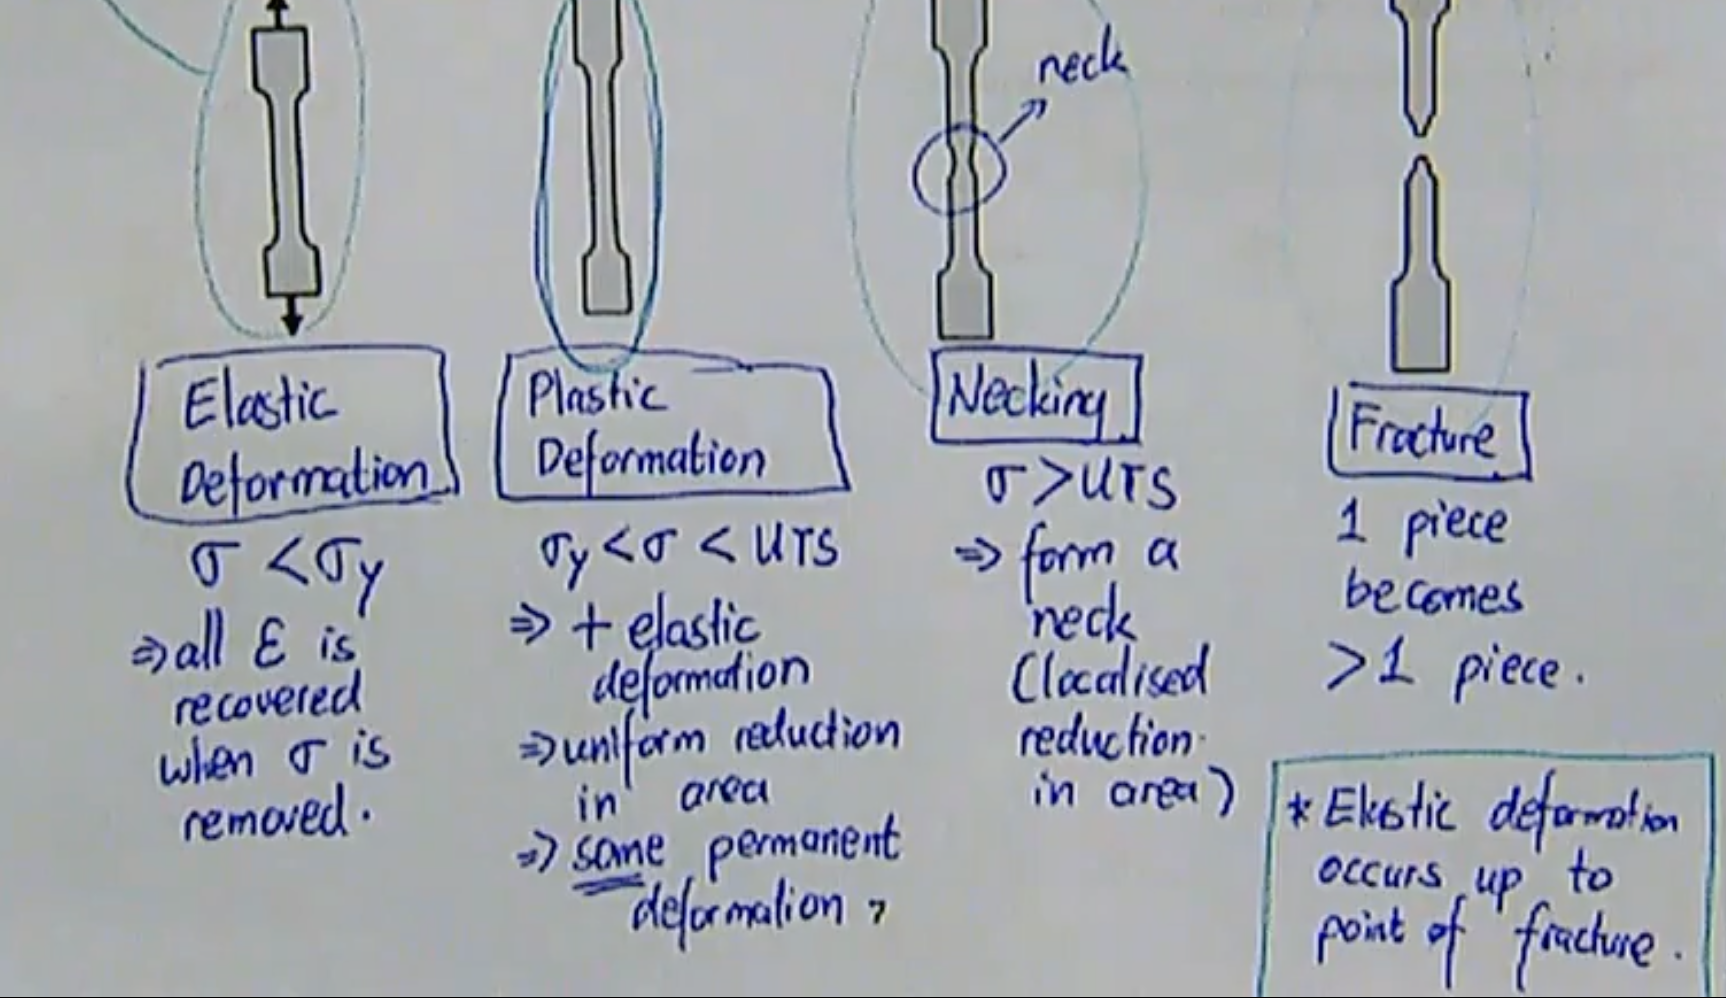 neck
Elastic
Deformation
σ < σy
⇒ all ε is
recovered
when σ is
removed.
Plastic
Deformation
σy < σ < UTS
⇒ + elastic
deformation
⇒ uniform reduction
in area
⇒ some permanent
deformation,
Necking
σ > UTS
⇒ form a
neck
(localised
reduction
in area)
Fracture
1 piece
becomes
>1 piece.
* Elastic deformation
occurs up to
point of fracture.